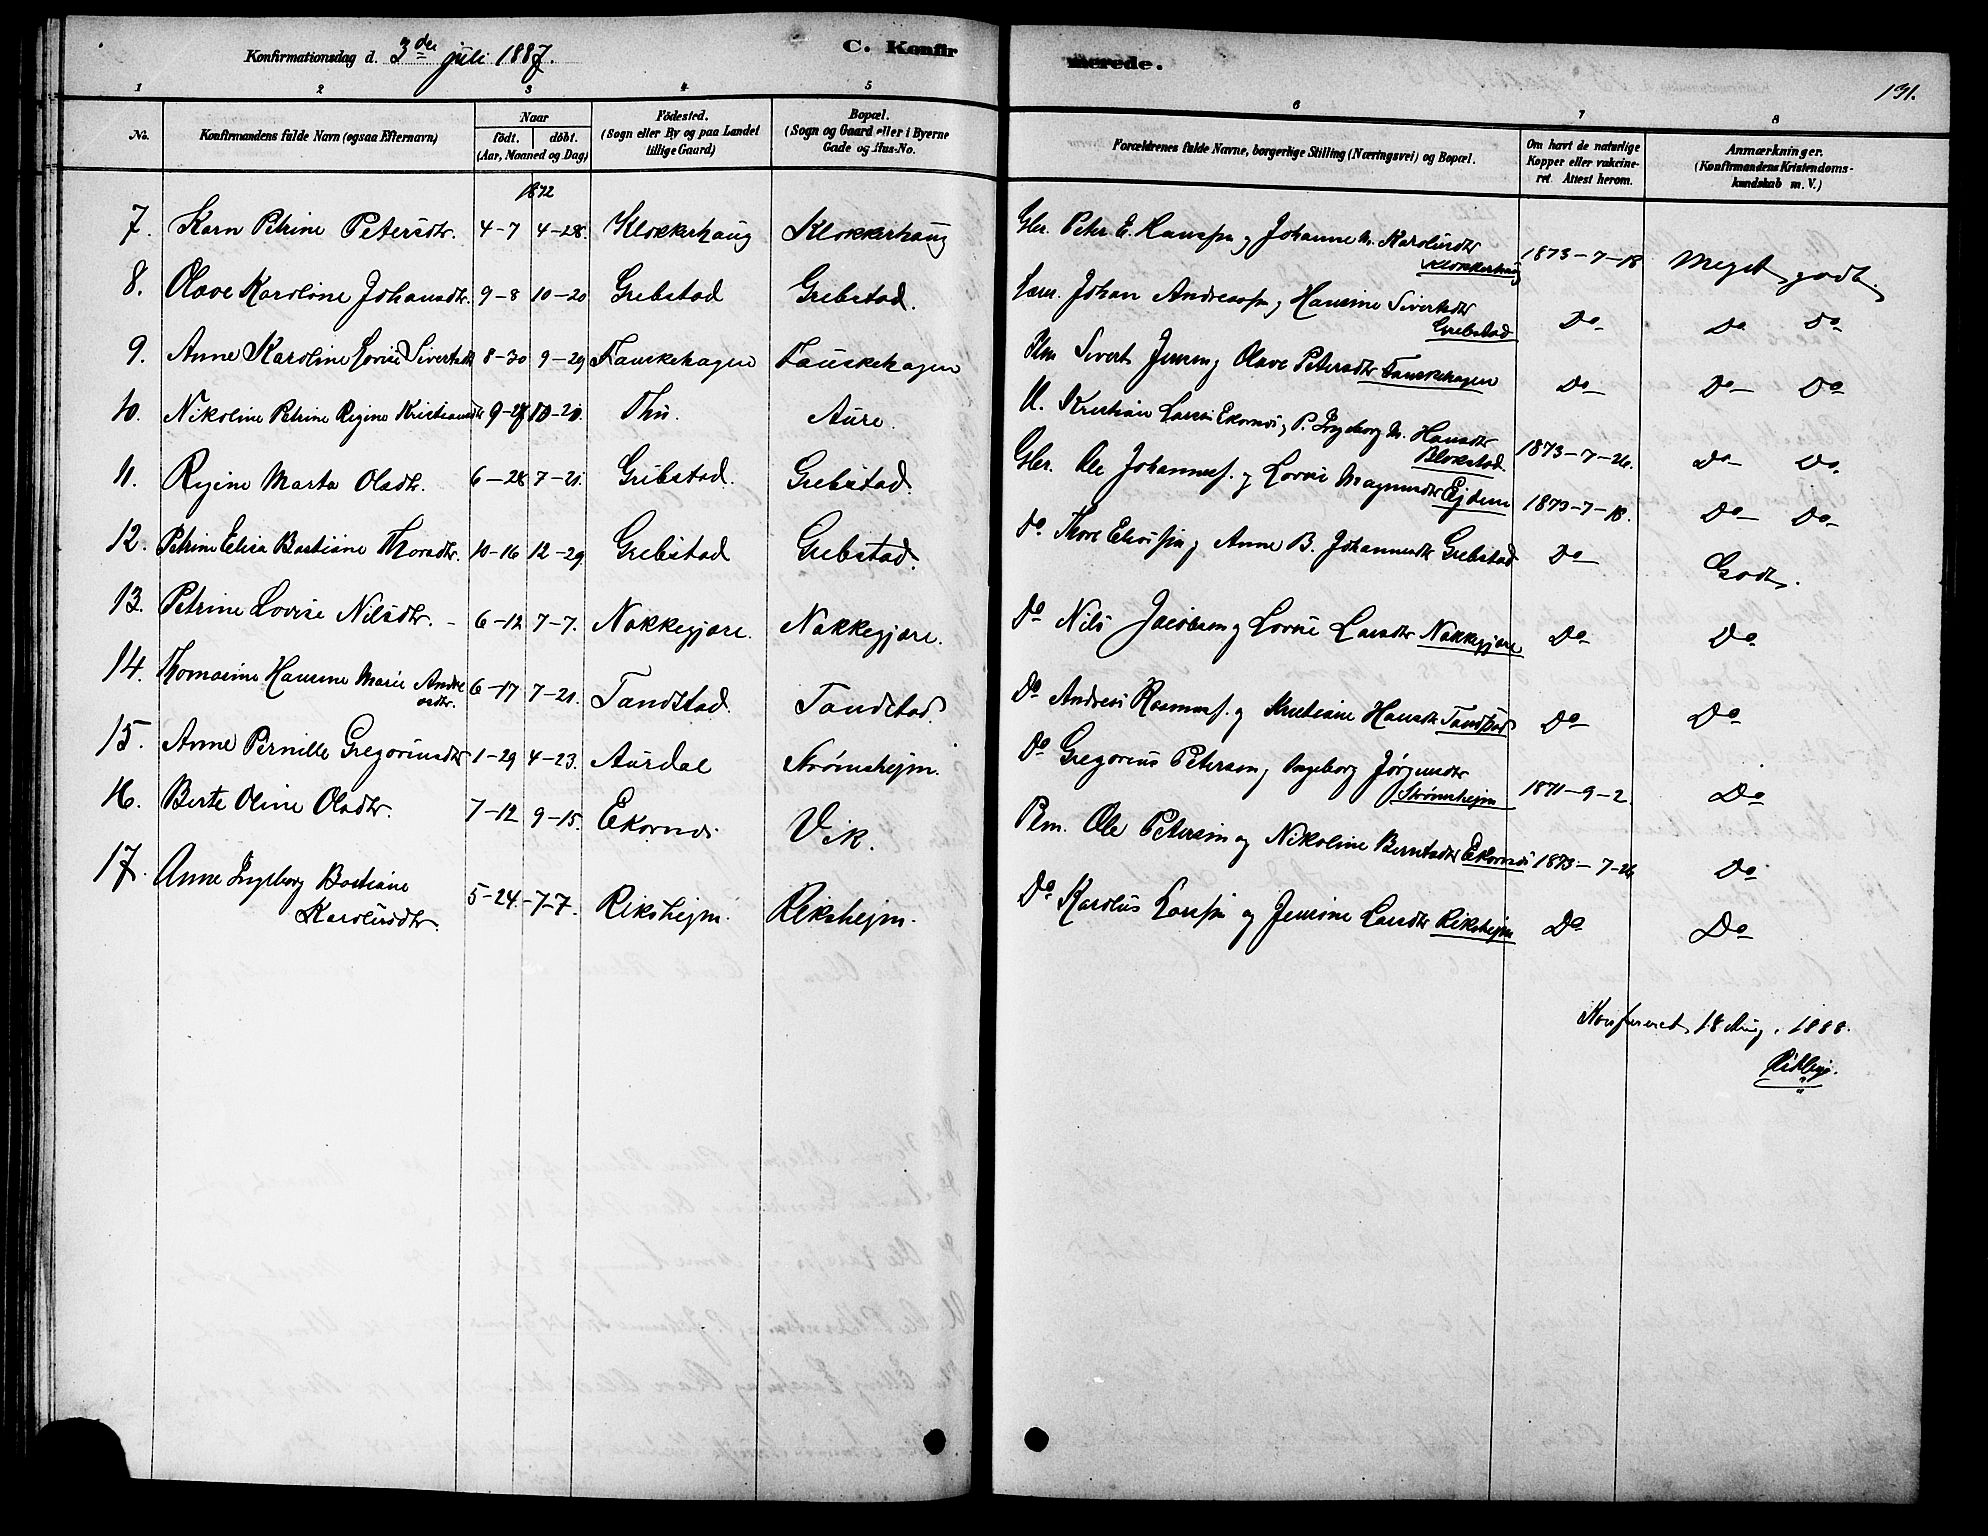 Konfirmationsdag d. 3die juli 1887.
C. Konfirmerede.
131.
1 2 3 4 5 6 7 8
No.
Konfirmandens fulde Navn (ogsaa Efternavn)
Naar
født. døbt.
(Aar, Maaned og Dag)
Fødested.
(Sogn eller By og paa Landet
tillige Gaard)
Bopæl.
(Sogn og Gaard eller i Byerne
Gade og Hus-No.
Forældrenes fulde Navne, borgerlige Stilling (Næringsvei) og Bopæl.
Om havt de naturlige
Kopper eller vakcine-
ret. Attest herom.
Anmærkninger.
(Konfirmandens Kristendoms-
kundskab m. V.)
1872
7. Karn Petrine Petersdtr. 4-7 4-28. Klokkerhaug Klokkerhaug Gbr. Peter E. Hanssn og Johanne M. Karolusdtr Klokkerhaug 1873-7-18 Meget godt.
8. Olave Karoline Johansdtr. 9-8 10-20 Grebstad Grebstad. Johan Andreassn og Hansine Sivertsdtr Grebstad Do Do Do
9. Anne Karoline Lovise Sivertsdtr 8-30 9-29 Fauskehagen Fauskehagen Plm Sivert Jensen og Olave Petersdtr Fauskehagen Do Do Do
10. Nikoline Petrine Regine Kristiansdtr 9-28 10-20. Thu. Aure. U. Kristian Larsen Ekornæs, P. Ingeborg M. Hansdtr Blokstad 1873-7-26. Do Do
11. Regine Marta Olsdtr. 6-28 7-21. Grebstad. Grebstad. Gbr. Ole Johannesf. og Lovise Magnusdtr Ejdem 1873-7-18. Do Do
12. Petrine Elisa Bastiane Thoresdtr. 10-16 12-29. Grebstad Grebstad. Do Thore Eliassn og Anne B. Johannesdtr Grebstad Do Godt.
13. Petrine Lovise Nilsdtr. 6-12 7-7. Nakkegjære. Nakkegjære. Do Nils Jacobsen og Lovise Larsdtr Nakkegjære Do Do
14. Thomasine Hansine Marie Andreasdtr. 6-17 7-21. Tandstad. Tandstad. Do Andreas Rasmusf. og Kristiane Hansdtr Tandstad Do Do
15. Anne Pernille Gregoriusdtr 1-29 4-23. Aurdal Strømshejm. Do Gregorius Petersen og Ingeborg Jørgensdtr Strømshejm 1871-9-2. Do
16. Berte Oline Olsdtr. 7-12 9-15. Ekornæs Vik. Plm. Ole Petersen og Nikoline Berntsdtr Ekornæs 1873-7-26 Do
17. Anne Ingeborg Bastiane
Karolusdtr. 5-24. 7-7. Rikshejm. Rikshejm. Do Karolus Larssn og Jensine Larsdtr Rikshejm Do Do
Konfereret, 18 Aug. 1888.